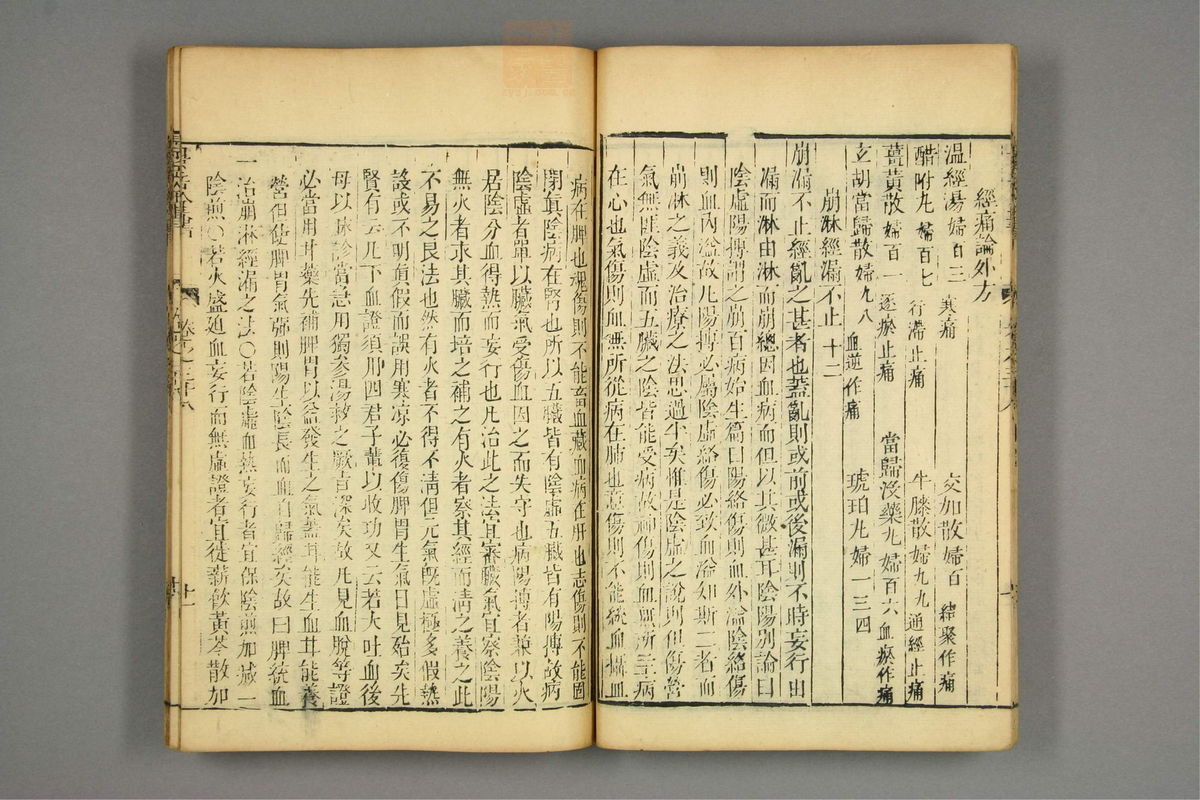 經痛論外方
溫經湯婦百三 寒痛 交加散婦百 結聚作痛
醋附丸婦百七 行滯止痛 牛膝散婦九九 通經止痛
薑黃散婦百一 逐瘀止痛 當歸沒藥丸婦百六 血瘀作痛
玄胡當歸散婦九八 血逆作痛 琥珀丸婦一三四
崩淋經漏不止 十二
崩漏不止經亂之甚者也蓋亂則或前或後漏則不時妄行由
漏而淋由淋而崩總因血病而但以其微甚耳陰陽別論曰
陰虛陽搏謂之崩百病始生篇曰陽絡傷則血外溢陰絡傷
則血內溢故凡陽搏必屬陰虛絡傷必致血溢知斯二者而
崩淋之義及治療之法思過半矣惟是陰虛之說則但傷營
氣無匪陰虛而五臟之陰皆能受病故神傷則血無所主病
在心也氣傷則血無所從病在肺也意傷則不能統血攝血
病在脾也魂傷則不能蓄血藏血病在肝也志傷則不能固
閉真陰病在腎也所以五臟皆有陰虛五臟皆有陽搏故病
陰虛者單以臟氣受傷血因之而失守也病陽搏者兼以火
居陰分血得熱而妄行也凡治此之法宜審臟氣宜察陰陽
無火者求其臟而培之補之有火者察其經而清之養之此
不易之良法也然有火者不得不清但元氣既虛極多假熱
設或不明真假而誤用寒凉必復傷脾胃生氣日見殆矣先
賢有云凡下血證須用四君子輩以收功又云若大吐血後
毋以脉診當急用獨參湯救之厥旨深矣故凡見血脫等證
必當用甘藥先補脾胃以益發生之氣蓋甘能生血甘能養
營但使脾胃氣強則陽生陰長而血自歸經矣故曰脾統血
一治崩淋經漏之法○若陰虛血熱妄行者宜保陰煎加減一
陰煎○若火盛迫血妄行而無虛證者宜徙薪飲黃芩散加